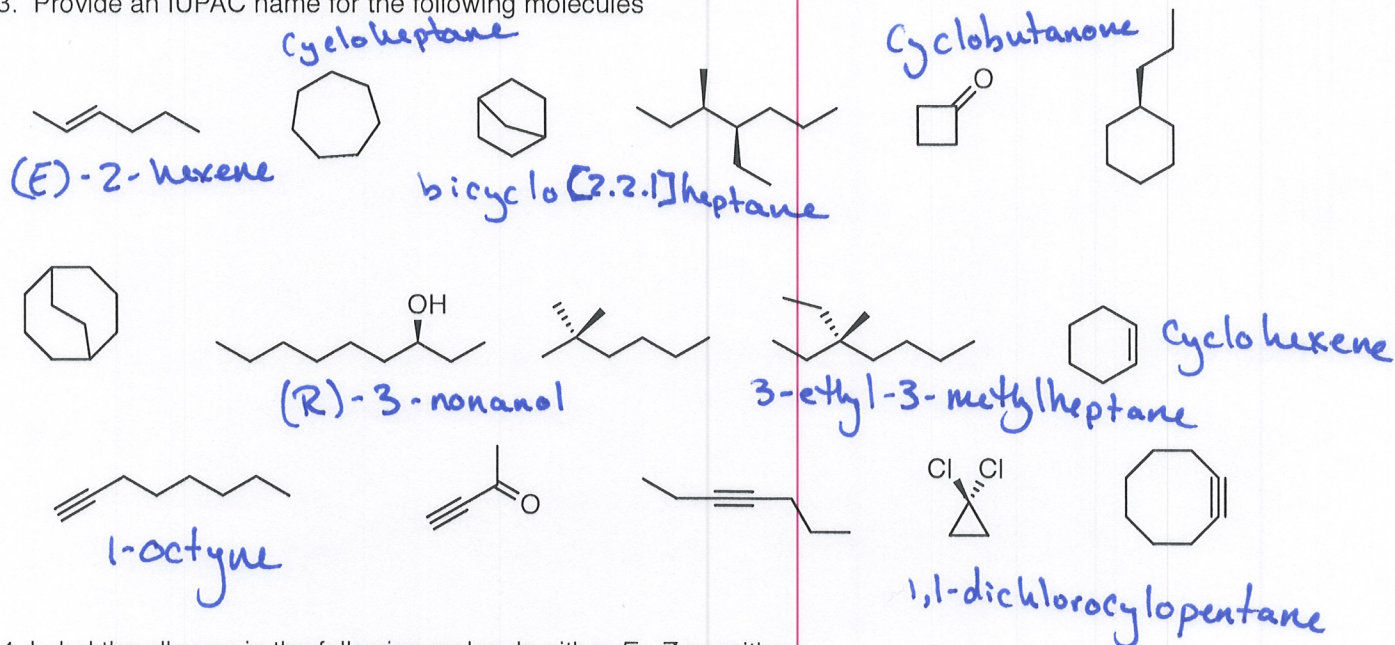 3. Provide an IUPAC name for the following molecules
Cycloheptane
Cyclobutanone
O
(E)-2-hexene
bicyclo[2.2.1]heptane
OH
(R)-3-nonanol
3-ethyl-3-methylheptane
Cyclohexene
1-octyne
O
Cl Cl
1,1-dichlorocylopentane